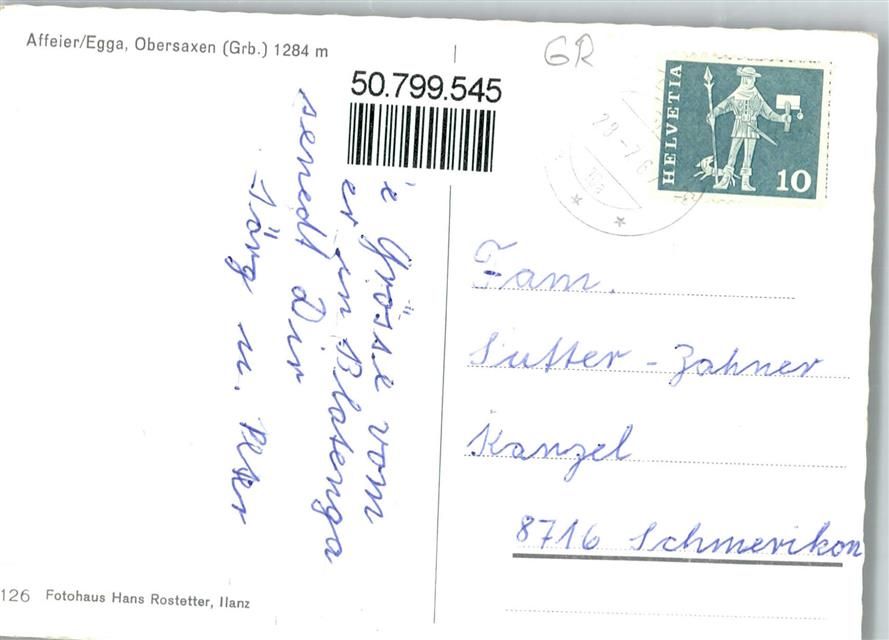 Affeier/Egga, Obersaxen (Grb.) 1284 m
GR
50.799.545
HELVETIA
10
Grösse vom
in Blatenga
senedt Dir
Jörg u. Peter
Fam.
Sutter - Zahner
Kanzel
8716 Schmerikon
126 Fotohaus Hans Rostetter, Ilanz